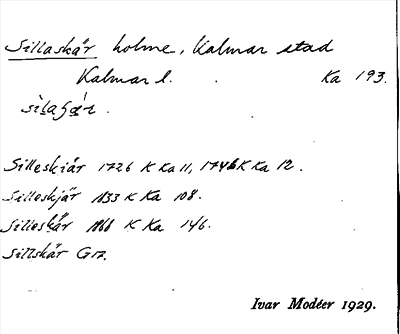 Sillaskär holme, Kalmar stad
Kalmar l. Ka 193.
Silleskiär 1726 K Ka 11, 1746 K Ka 12.
Silleskjär 1833 K Ka 108.
Silleskär 1868 K Ka 146.
Sillskär
Ivar Modéer 1929.